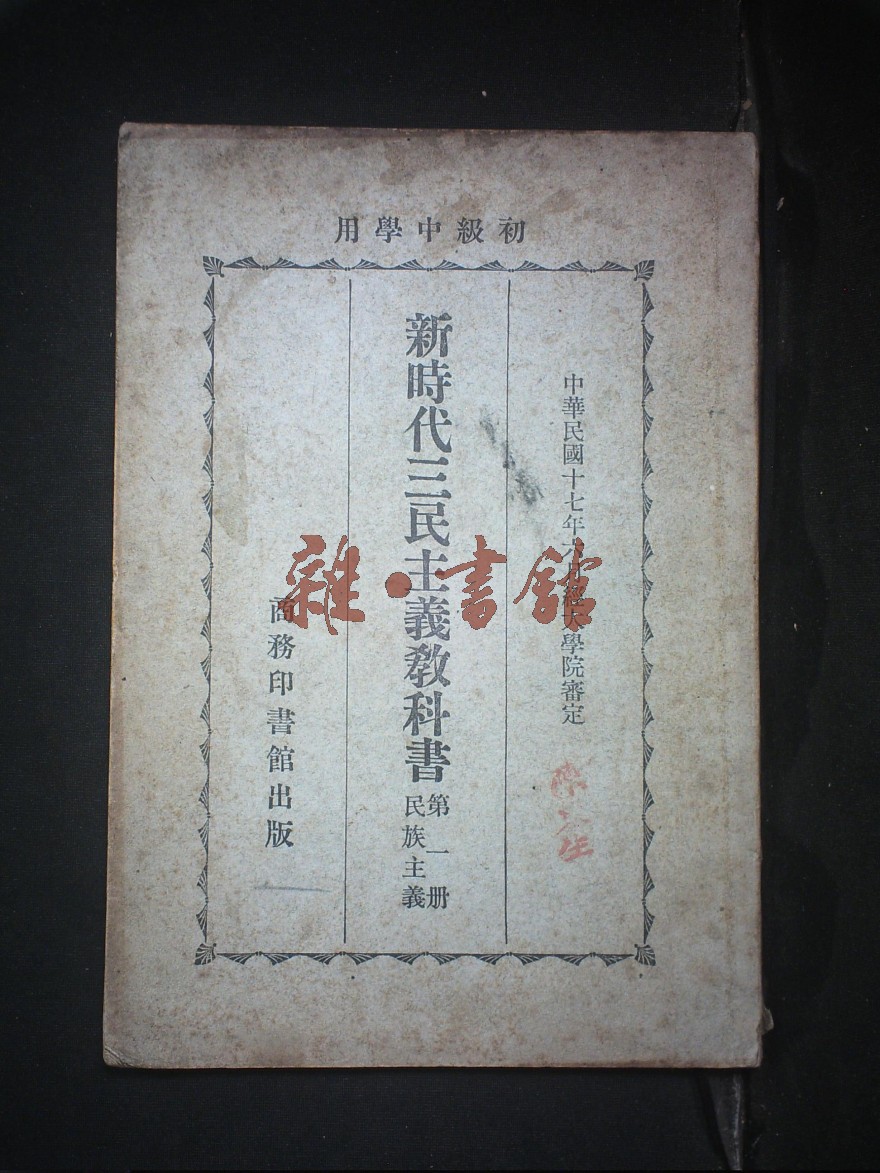 初級中學用
中華民國十七年六月經大學院審定
新時代三民主義教科書
第一册
民族主義
商務印書館出版
雜·書館